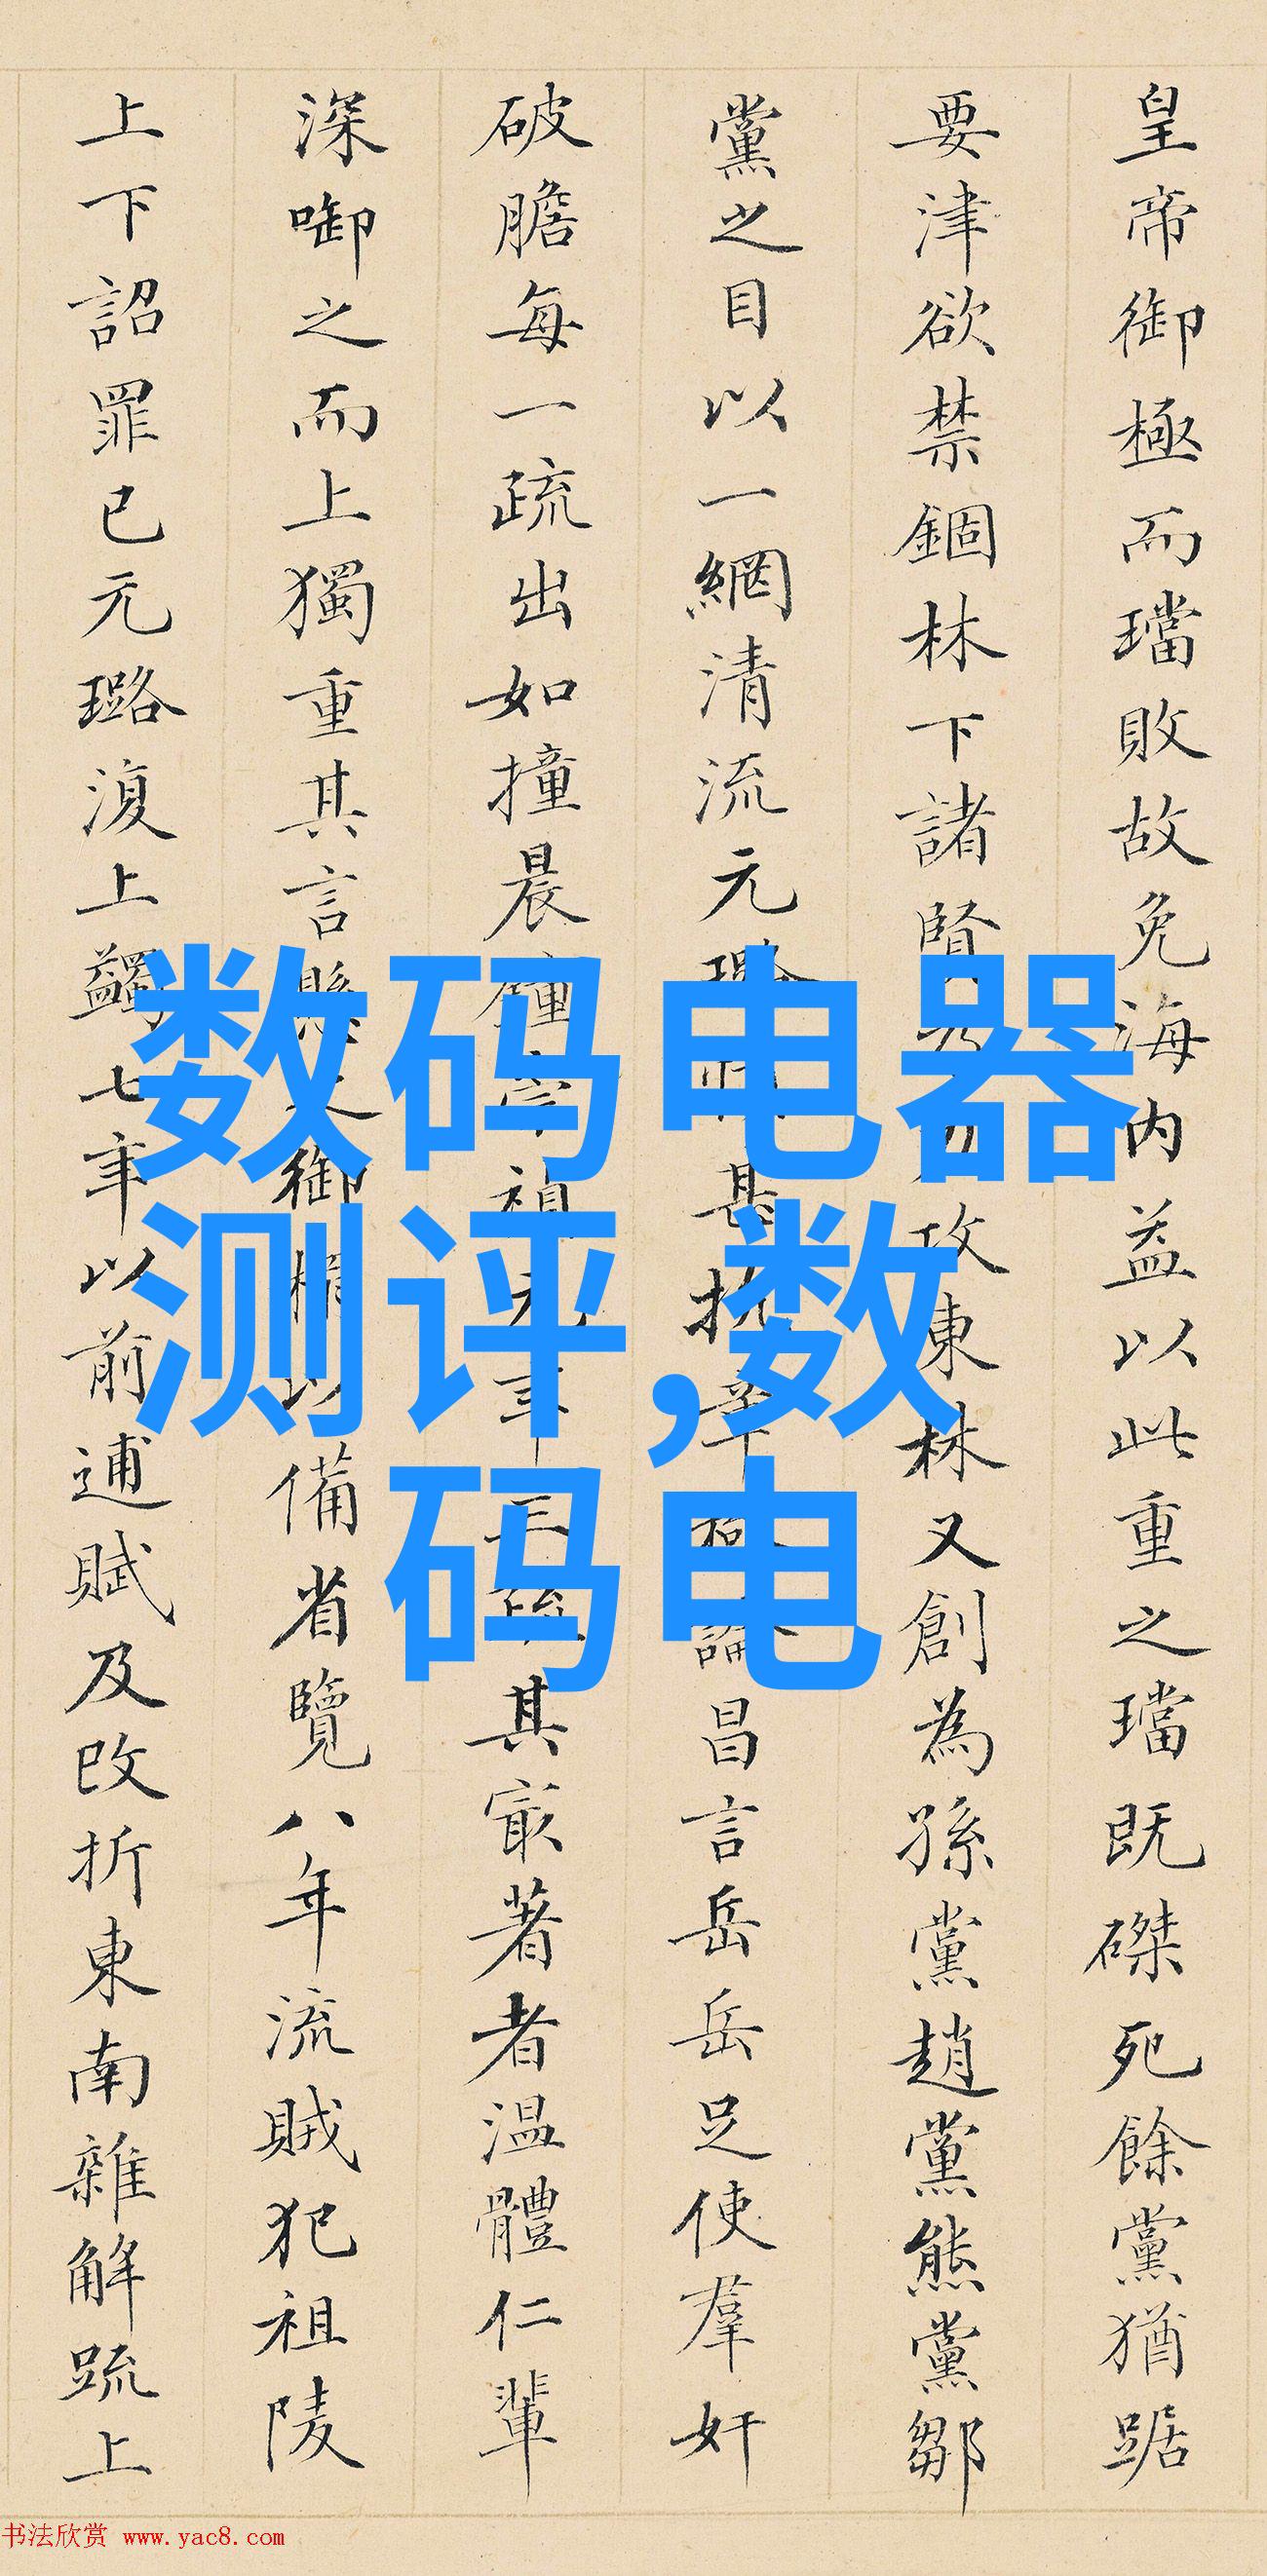 皇帝御極而璫敗故免海内益以此重之璫既磔死餘黨猶踞
要津欲禁錮林下諸賢攻東林又創為孫黨趙黨熊黨鄒
黨之目以一網清流元璐甚抗論昌言岳岳足使羣奸
破膽每一疏出如撞晨鐘元年三疏其最著者温體仁輩
深啣之而上獨重其言御備省覽八年流賊犯祖陵
上下詔罪已元璐復上蠲七年以前逋賦及改折東南雜解疏上
数码电器
测评,数
码电
书法欣赏 www.yac8.com